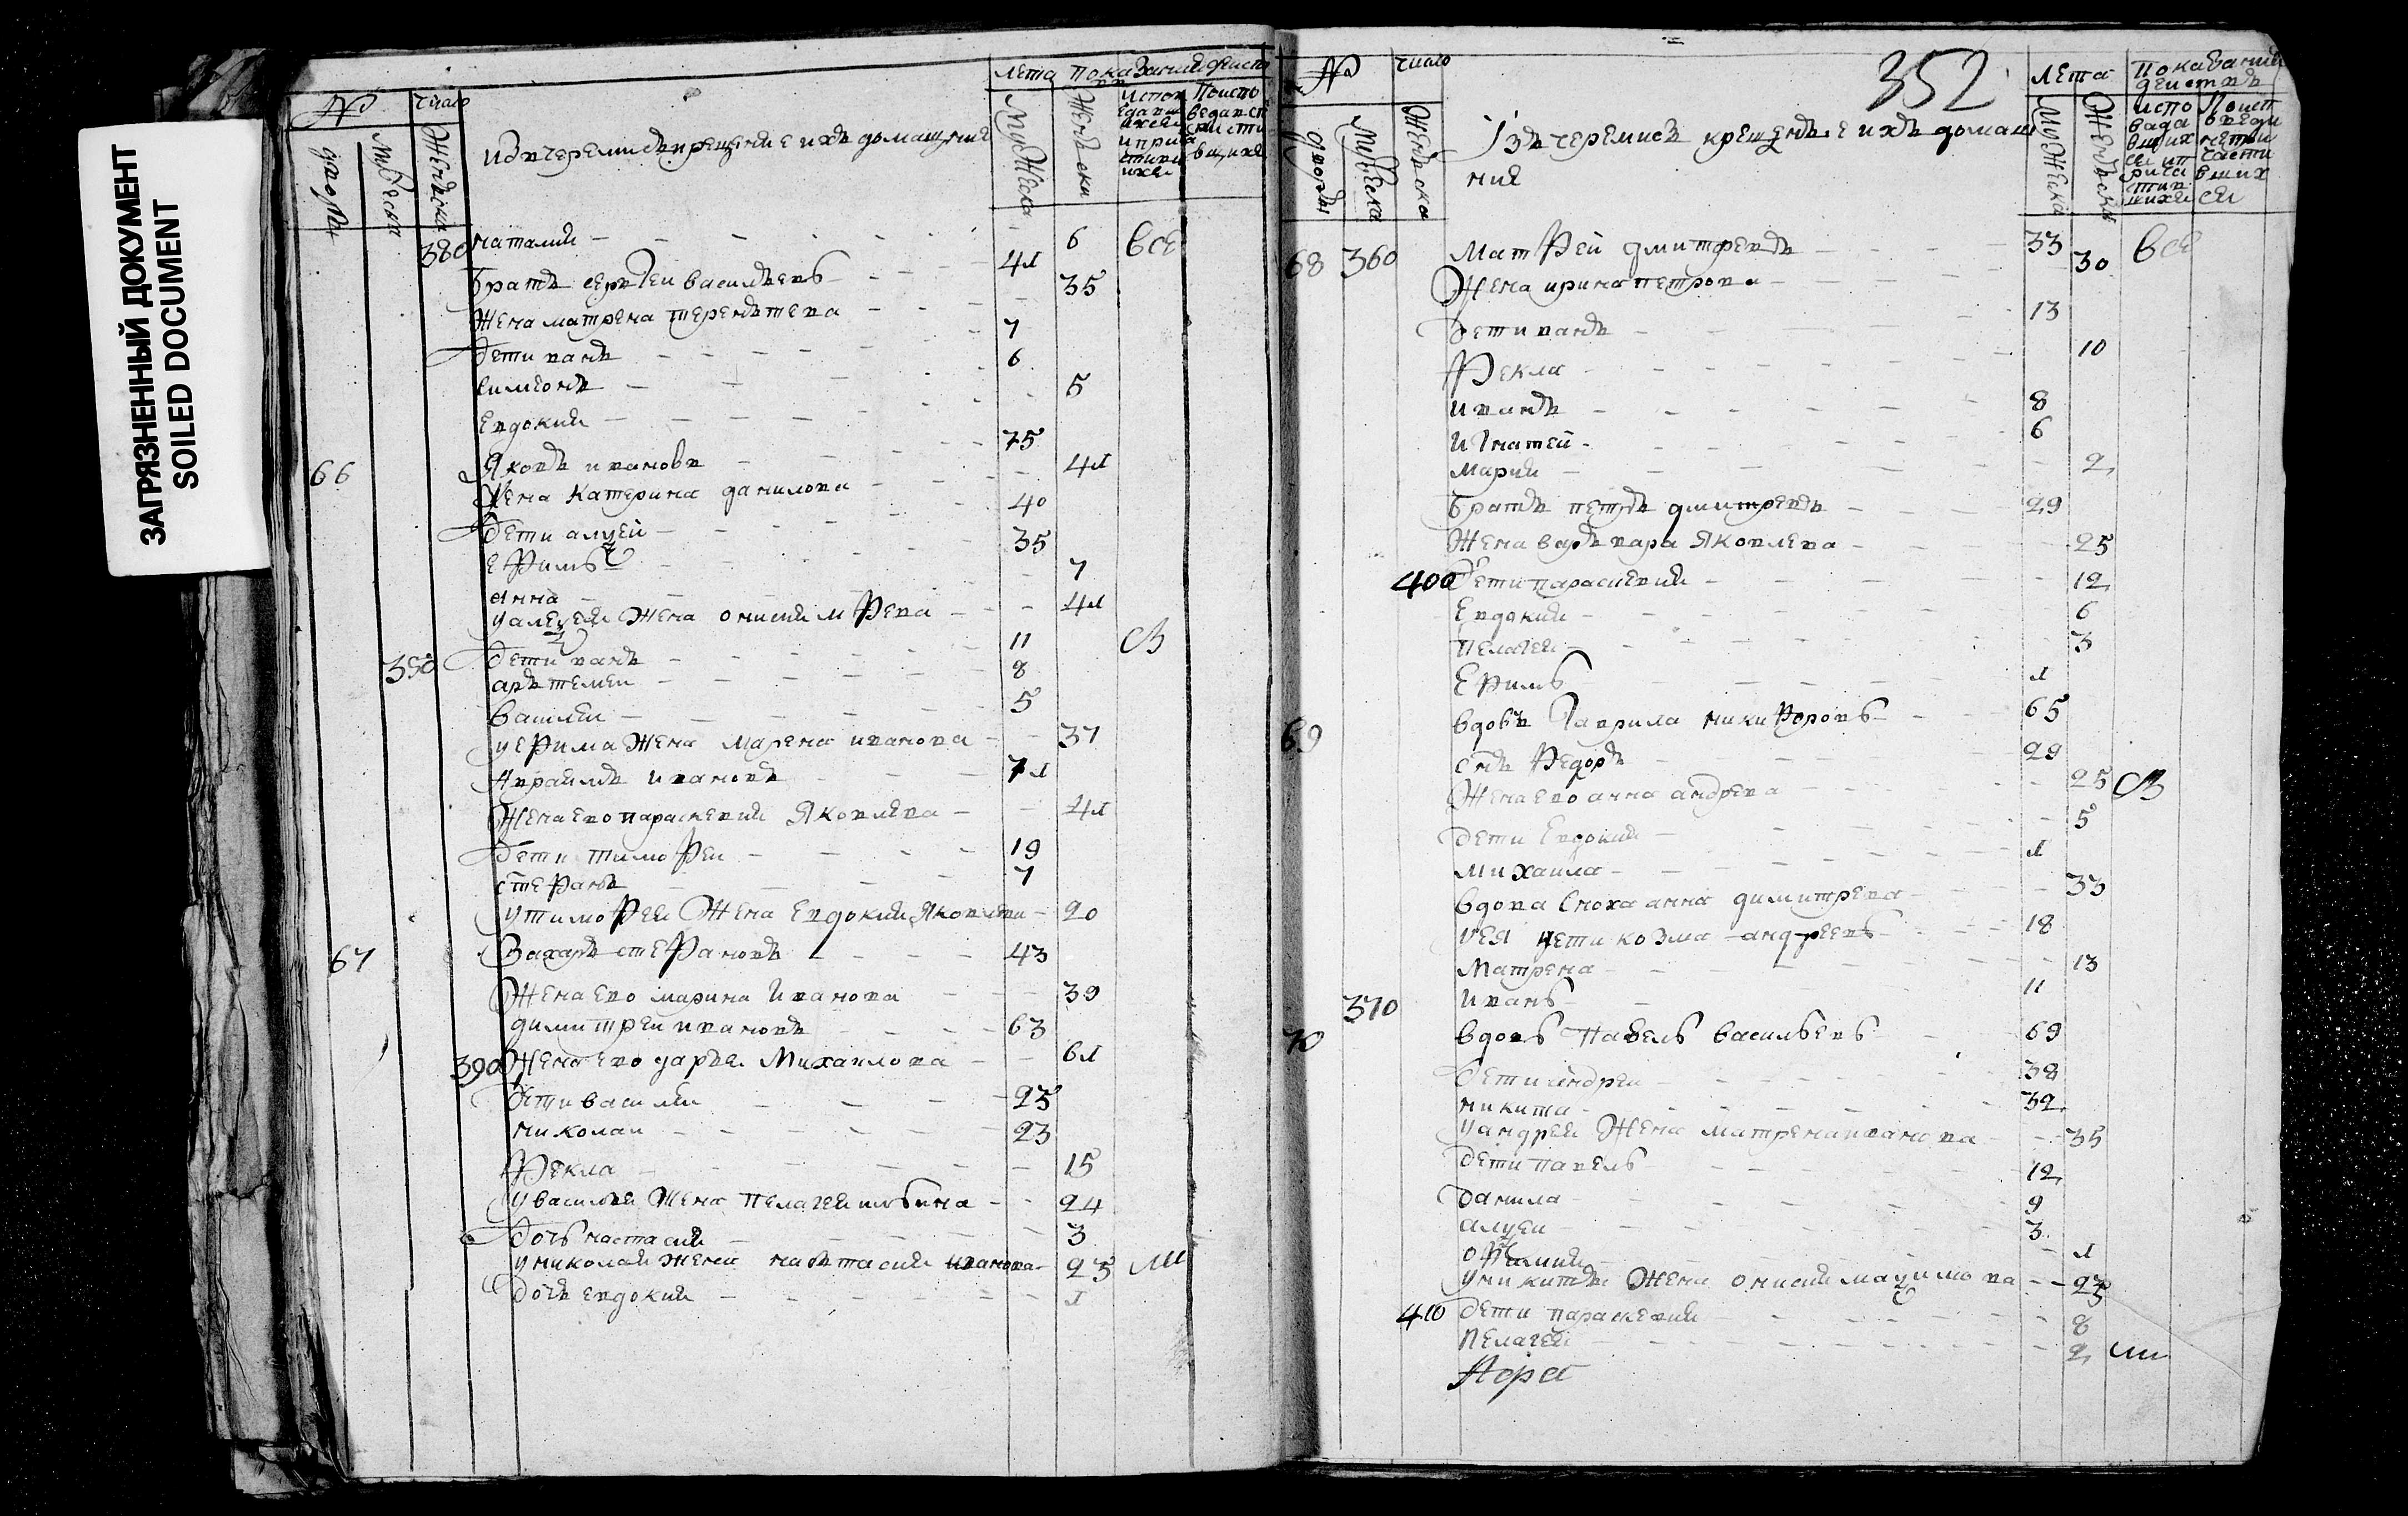 ЗАГРЯЗНЕННЫЙ ДОКУМЕНТ
SOILED DOCUMENT
№ число лета показании
дворы мужеска женъска
мужеска женъска
380 наталии 6 все
братъ сергеи василъевъ 41
жена матрена терентъева 35
дети иванъ 7
симионъ 6
евдокии 5
66 Яковъ ивановъ 75
жена катерина данилова 41
дети алуѯей 40
ефимъ 35
анна 7
жена онисия 41
350 дети иванъ 11
артъемеи 8
василеи 5
у ефима жена марена иванова 37
авраимъ ивановъ 71
жена ево параскевия Яковлева 41
дети тимофеи 19
стефанъ 7
у тимофея жена евдокия Яковлева 20
67 Захаръ стефановъ 43
жена ево марина иванова 39
димитреи ивановъ 63
390 жена ево дарья Михаилова 61
дети василеи 25
николаи 23
Фекла 15
у василья жена пелагея ильина 24
дочь настасия 3
у николая жена настасия иванова 23
дочь евдокия 1
352
№ число лета показании
деиствъ
дворы мужеска женъска
Изъ черемисъ крещенъ е ихъ домаш
ние
мужеска женъска
68 360 Матфей дмитревъ 33 все
жена ирина петрова 30
дети иванъ 13
Фекла 10
иванъ 8
игнатей 6
мария 2
братъ петръ дмитревъ 29
жена варъвара Яковлева 25
400 дети параскевия 12
Евдокия 6
пелагея 3
Ефимъ 1
69 вдовъ гаврила никифоровъ 65
снъ Федоръ 29
жена ево анна андрева 25
дети Евдокия 5
михаила 1
вдова сноха анна димитрева 33
у ея дети козма андреевъ 18
Матрена 13
370 иванъ 11
70 вдовъ Павелъ васильевъ 69
дети андреи 38
никита 32
у андрея жена матрена иванова 35
дети павелъ 12
данила 9
алуѯеи 3
офимия 1
у никиты жена онисия маѯимова 23
410 дети параскевия 8
Пелагея 2